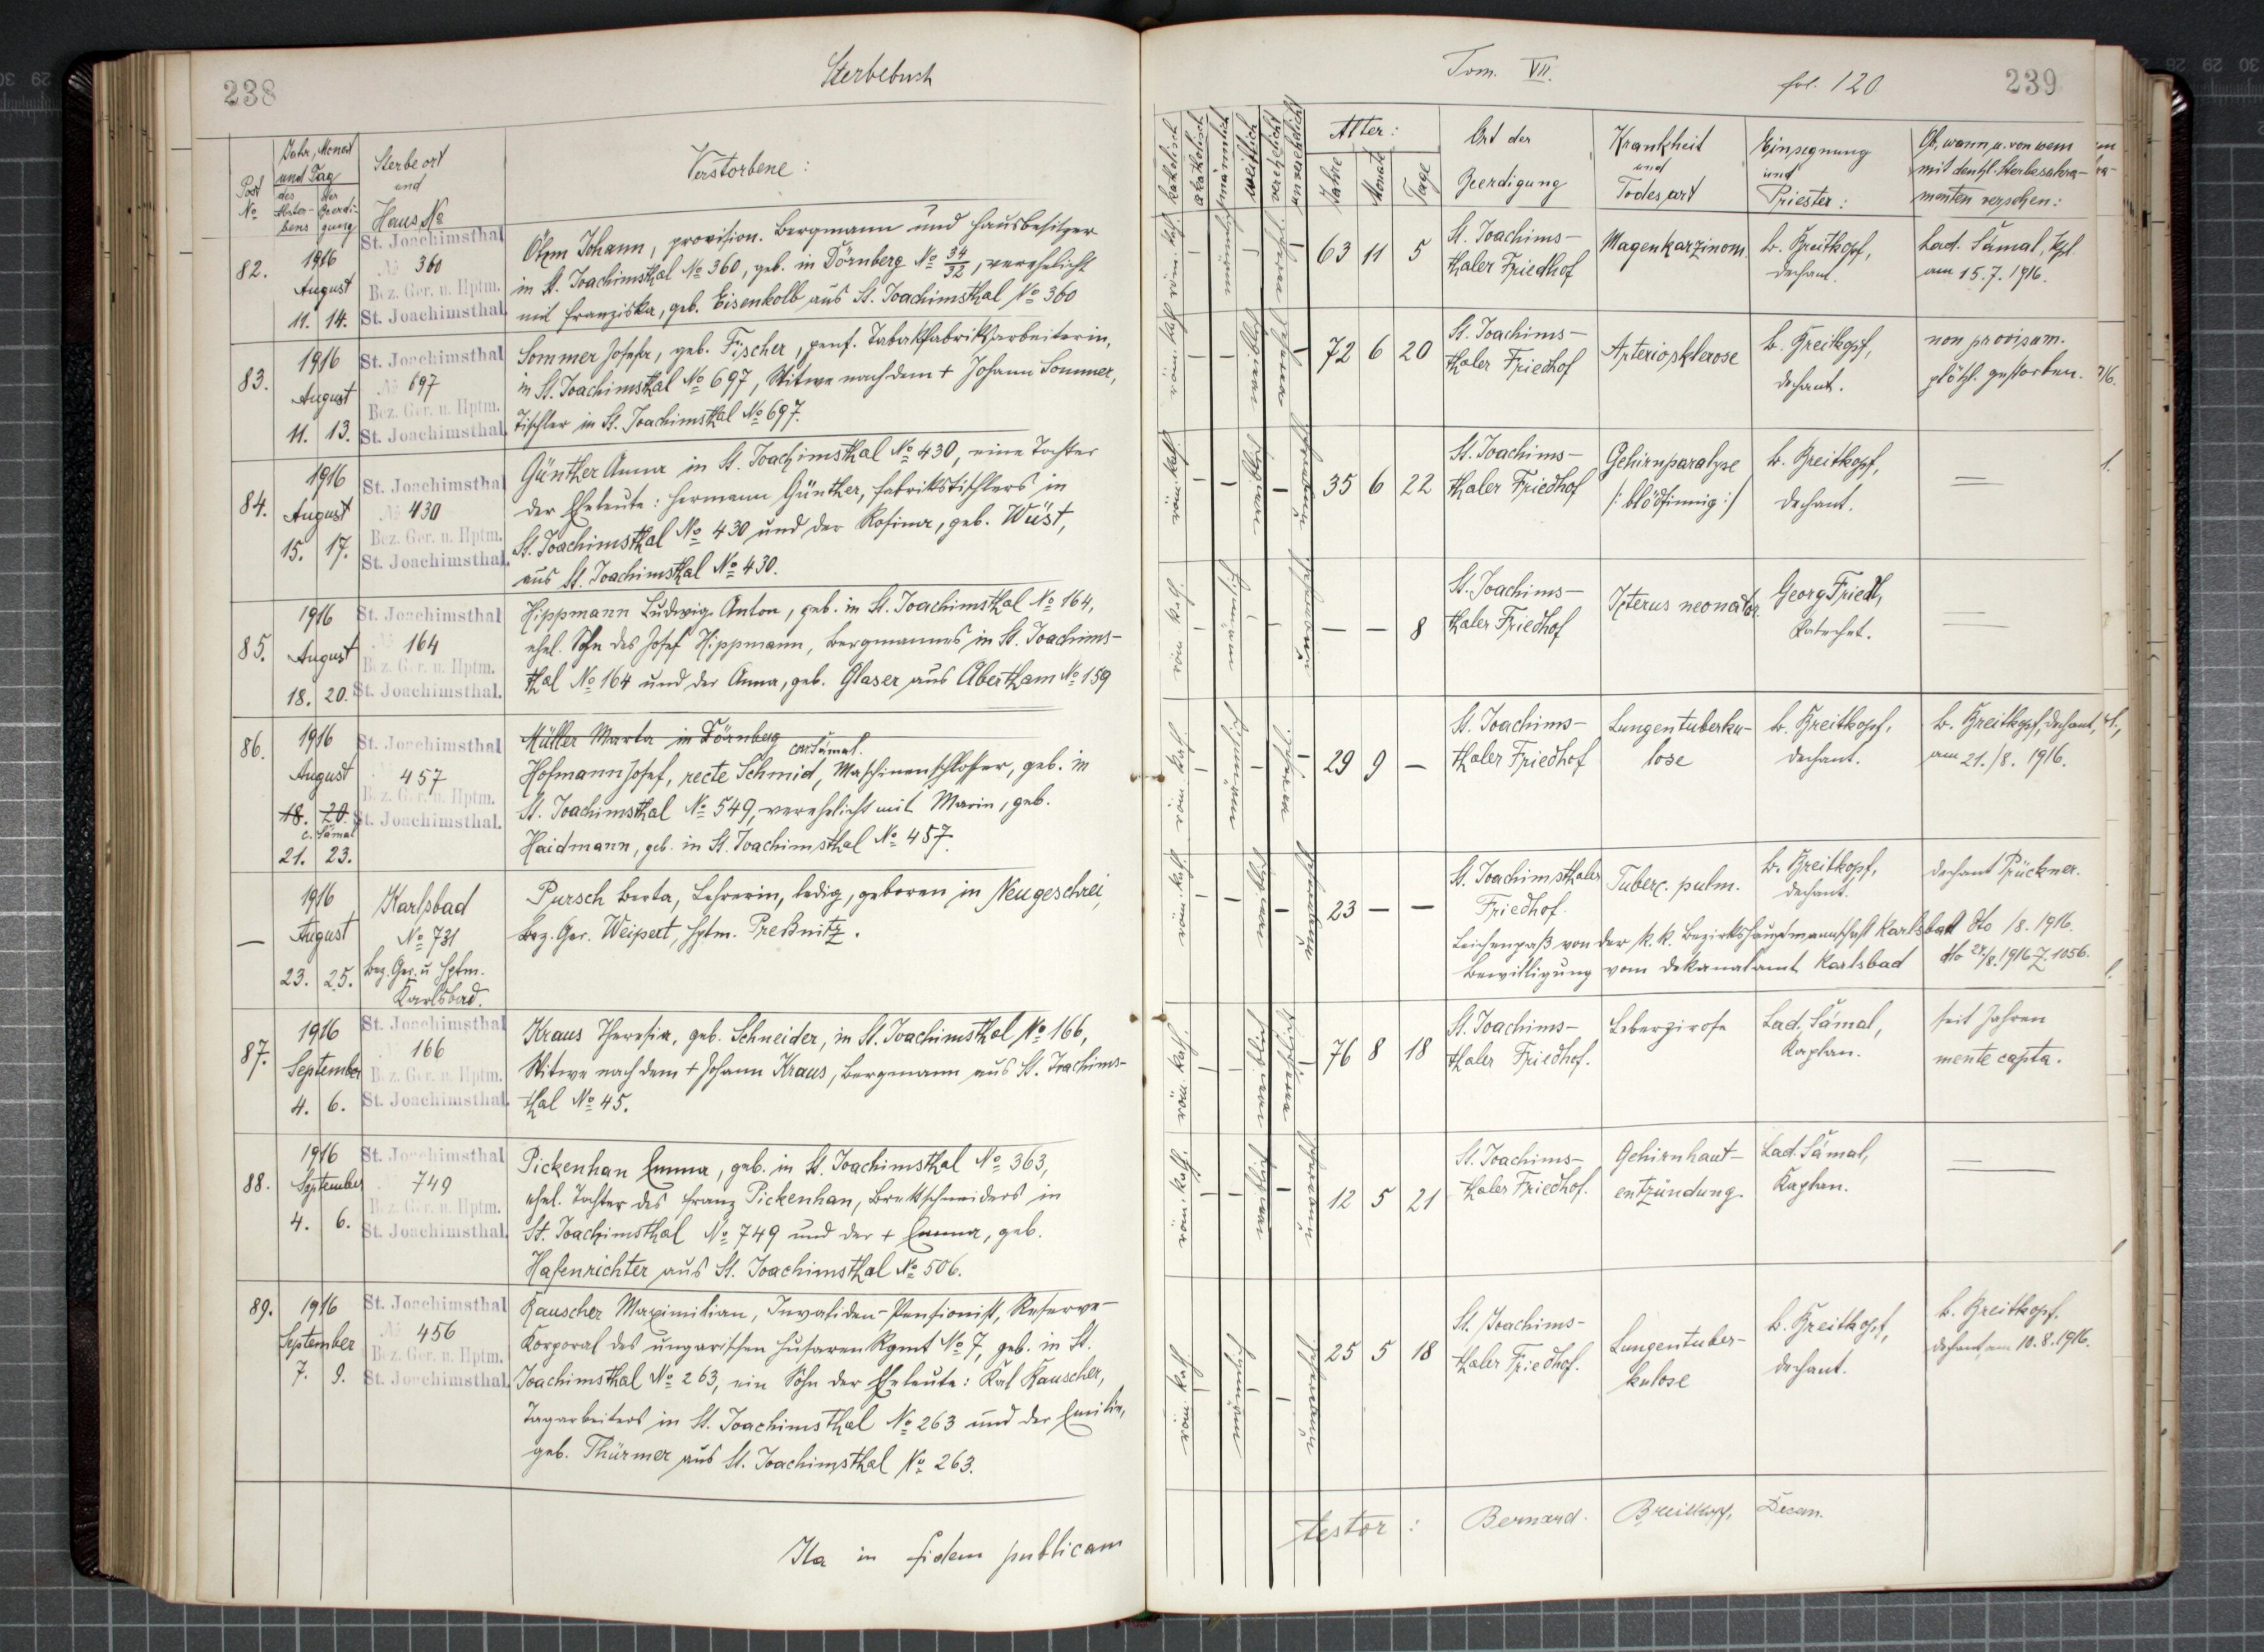 238
Sterbebuch
Post
No
Jahr, Monat
und Tag
des
Abster-
bens
der
Beerdi-
gung
Sterbeort
und
Haus No
Verstorbene:
82.
1916
August
11. 14.
St. Joachimsthal
No 360
Bez. Ger. u. Hptm.
St. Joachimsthal.
Öhm Johann, provision. Bergmann und Hausbesitzer
in St. Joachimsthal No 360, geb. in Dörnberg No 34/32, verehelicht
mit Franziska, geb. Eisenkolb aus St. Joachimsthal No 360
83.
1916
August
11. 13.
St. Joachimsthal
No 697
Bez. Ger. u. Hptm.
St. Joachimsthal.
Sommer Josefa, geb. Fischer, pens. Tabakfabriksarbeiterin,
in St. Joachimsthal No 697, Witwe nach dem + Johann Sommer,
Tischler in St. Joachimsthal No 697.
84.
1916
August
15. 17.
St. Joachimsthal
No 430
Bez. Ger. u. Hptm.
St. Joachimsthal.
Günther Anna in St. Joachimsthal No 430, eine Tochter
der Eheleute: Hermann Günther, Fabrikstischlers in
St. Joachimsthal No 430 und der Rosina, geb. Wüst,
aus St. Joachimsthal No 430.
85.
1916
August
18. 20.
St. Joachimsthal
164
Bez. Ger. u. Hptm.
St. Joachimsthal.
Hippmann Ludwig Anton, geb. in St. Joachimsthal No 164,
ehel. Sohn des Josef Hippmann, Bergmannes in St. Joachims-
thal No 164 und der Anna, geb. Glaser aus Abertham No 159
86.
1916
August
18. 20.
c. Sámal
21. 23.
St. Joachimsthal
457
Bez. Ger. u. Hptm.
St. Joachimsthal.
Müller Marta in Dörnberg
cor. Sámal.
Hofmann Josef, recte Schmid, Maschinenschlosser, geb. in
St. Joachimsthal No 549, verehelicht mit Marie, geb.
Haidmann, geb. in St. Joachimsthal No 457.
—
1916
August
23. 25.
Karlsbad
No 731
Bez. Ger. u Hptm.
Karlsbad.
Pursch Berta, Lehrerin, ledig, geboren in Neugeschrei,
Bez. Ger. Weipert, Hptm. Preßnitz.
87.
1916
September
4. 6.
St. Joachimsthal
166
Bez. Ger. u. Hptm.
St. Joachimsthal.
Kraus Theresia, geb. Schneider, in St. Joachimsthal No 166,
Witwe nach dem + Johann Kraus, Bergmann aus St. Joachims-
thal No 45.
88.
1916
September
4. 6.
St. Joachimsthal
749
Bez. Ger. u. Hptm.
St. Joachimsthal.
Pickenhan Emma, geb. in St. Joachimsthal No 363,
ehel. Tochter des Franz Pickenhan, Brettschneiders in
St. Joachimsthal No 749 und der + Emma, geb.
Hafenrichter aus St. Joachimsthal No 506.
89.
1916
September
7. 9.
St. Joachimsthal
No 456
Bez. Ger. u. Hptm.
St. Joachimsthal.
Kauscher Maximilian, Invaliden-Pensionist, Reserve-
Korporal des ungarischen Husaren Rgmt No 7, geb. in St.
Joachimsthal No 263, ein Sohn der Eheleute: Karl Kauscher,
Tagarbeiters in St. Joachimsthal No 263 und der Emilie,
geb. Thürmer aus St. Joachimsthal No 263.
Ita in fidem publicam
Tom. VII.
fol. 120
239
katholisch
akatholisch
männlich
weiblich
verehelicht
unverehelicht
Alter:
Jahre
Monate
Tage
Ort der
Beerdigung
Krankheit
und
Todesart
Einsegnung
und
Priester:
Ob, wann, u. von wem
mit den hl. Sterbesakra-
menten versehen:
röm. kath.
63 11 5
St. Joachims-
thaler Friedhof
Magenkarzinom
B. Breitkopf,
Dechant.
Lad. Sámal, Kpl.
am 15. 7. 1916.
röm. kath.
72 6 20
St. Joachims-
thaler Friedhof
Arteriosklerose
B. Breitkopf,
Dechant.
non provisam.
plötzl. gestorben.
röm. kath.
35 6 22
St. Joachims-
thaler Friedhof
Gehirnparalyse
/: blödsinnig :/
B. Breitkopf,
Dechant.
röm. kath.
— — 8
St. Joachims-
thaler Friedhof
Icterus neonator.
Georg Friedl,
Katechet.
röm. kath.
29 9 —
St. Joachims-
thaler Friedhof
Lungentuberku-
lose
B. Breitkopf,
Dechant.
B. Breitkopf, Dechant,
am 21./8. 1916.
röm. kath.
23 — —
St. Joachimsthaler
Friedhof.
Tuberc. pulm.
B. Breitkopf,
Dechant.
Dechant Prückner.
Leichenpaß von der k. k. Bezirkshauptmannschaft Karlsbad dto /8. 1916.
Bewilligung vom Dekanalamt Karlsbad dto 24/8. 1916 Z. 1056.
röm. kath.
76 8 18
St. Joachims-
thaler Friedhof.
Leberzirose
Lad. Sámal,
Kaplan.
seit Jahren
mente capta.
röm. kath.
12 5 21
St. Joachims-
thaler Friedhof.
Gehirnhaut-
entzündung.
Lad. Sámal,
Kaplan.
röm. kath.
25 5 18
St. Joachims-
thaler Friedhof.
Lungentuber-
kulose
B. Breitkopf,
Dechant.
B. Breitkopf.
Dechant, am 10. 8. 1916.
testor: Bernard Breitkopf, Decan.